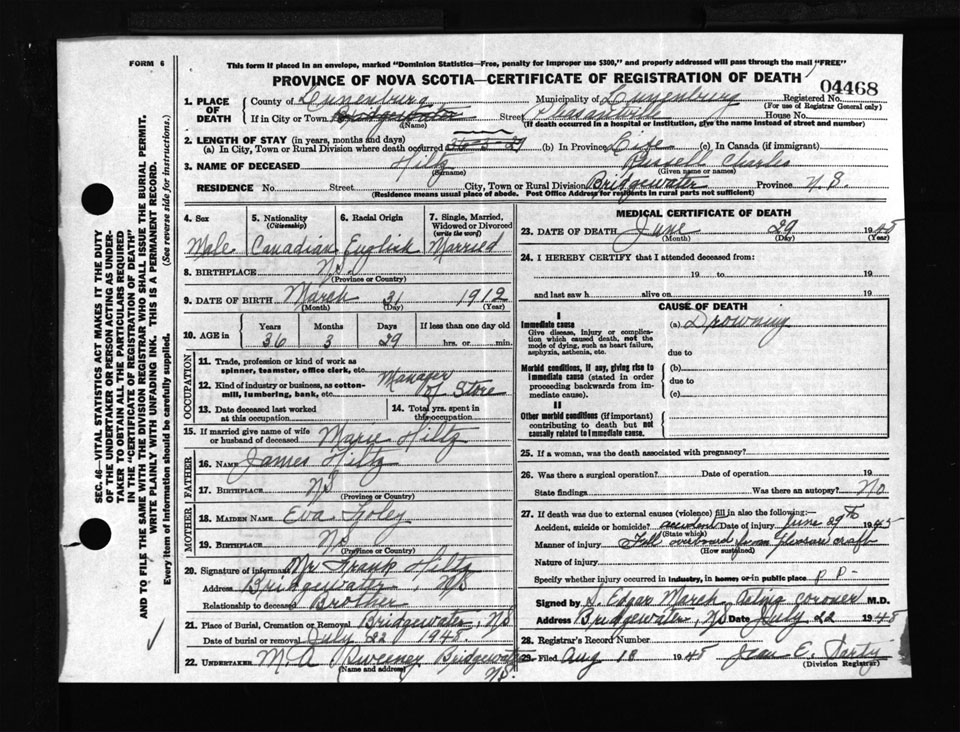 FORM 6
This form if placed in an envelope, marked "Dominion Statistics—Free, penalty for improper use $300," and properly addressed will pass through the mail "FREE"
PROVINCE OF NOVA SCOTIA—CERTIFICATE OF REGISTRATION OF DEATH
04468
1. PLACE OF DEATH
County of Lunenburg Municipality of Lunenburg Registered No.
(For use of Registrar General only)
If in City or Town Bridgewater Street House No.
(Name) (If death occurred in a hospital or institution, give the name instead of street and number)
2. LENGTH OF STAY (in years, months and days)
(a) In City, Town or Rural Division where death occurred 36-3-29 (b) In Province Life (c) In Canada (if immigrant)
3. NAME OF DECEASED Hiltz Russell Charles
(Surname) (Given name or names)
RESIDENCE No. Street City, Town or Rural Division Bridgewater Province N.S.
(Residence means usual place of abode. Post Office Address for residents in rural parts not sufficient)
4. Sex 5. Nationality (Citizenship) 6. Racial Origin 7. Single, Married, Widowed or Divorced (write the word)
Male Canadian English Married
8. BIRTHPLACE NS
(Province or Country)
9. DATE OF BIRTH March 31 1912
(Month) (Day) (Year)
10. AGE in Years Months Days If less than one day old
36 3 29 hrs. or min.
OCCUPATION
11. Trade, profession or kind of work as spinner, teamster, office clerk, etc. Manager
12. Kind of industry or business, as cotton-mill, lumbering, bank, etc. of Store
13. Date deceased last worked at this occupation
14. Total yrs. spent in this occupation
15. If married give name of wife or husband of deceased Marie Hiltz
FATHER
16. NAME James Hiltz
17. BIRTHPLACE NS
(Province or Country)
MOTHER
18. MAIDEN NAME Eva
19. BIRTHPLACE NS
(Province or Country)
20. Signature of informant Mr Frank Hiltz
Address Bridgewater, NS
Relationship to deceased Brother
21. Place of Burial, Cremation or Removal Bridgewater, NS
Date of burial or removal July 22 1948
22. UNDERTAKER M.A Sweeney Bridgewater NS.
(Name and address)
MEDICAL CERTIFICATE OF DEATH
23. DATE OF DEATH June 29 1948
(Month) (Day) (Year)
24. I HEREBY CERTIFY that I attended deceased from:
19 to 19
and last saw h alive on 19
CAUSE OF DEATH
I
Immediate cause (a) Drowning
Give disease, injury or complication which caused death, not the mode of dying, such as heart failure, asphyxia, asthenia, etc.
due to
Morbid conditions, if any, giving rise to immediate cause (stated in order proceeding backwards from immediate cause).
(b)
due to
(c)
II
Other morbid conditions (if important) contributing to death but not causally related to immediate cause.
25. If a woman, was the death associated with pregnancy?
26. Was there a surgical operation? Date of operation 19
State findings Was there an autopsy? No
27. If death was due to external causes (violence) fill in also the following:
Accident, suicide or homicide? accident Date of injury June 29th 1948
(State which)
Manner of injury Fell overboard from pleasure craft
(How sustained)
Nature of injury
Specify whether injury occurred in industry, in home, or in public place P P-
Signed by S. Edgar March Acting Coroner M.D.
Address Bridgewater, NS Date July 22 1948
28. Registrar's Record Number
29. Filed Aug 18 1948 Jean E.
(Division Registrar)
SEC. 46—VITAL STATISTICS ACT MAKES IT THE DUTY OF THE UNDERTAKER OR PERSON ACTING AS UNDERTAKER TO OBTAIN ALL THE PARTICULARS REQUIRED IN THE "CERTIFICATE OF REGISTRATION OF DEATH" AND TO FILE THE SAME WITH THE DIVISION REGISTRAR WHO SHALL ISSUE THE BURIAL PERMIT.
WRITE PLAINLY WITH UNFADING INK. THIS IS A PERMANENT RECORD.
Every item of information should be carefully supplied. (See reverse side for instructions.)